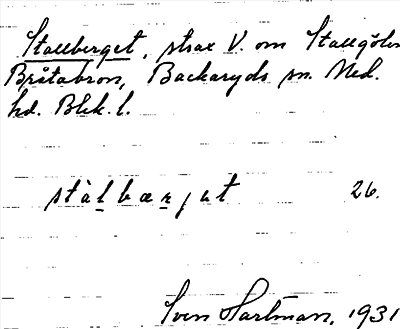 Stallberget, strax V. om Stallgölen
Bråtabron, Backaryds sn. Med.
hd. Blek. l.
stàlbærjət 26.
Sven Hartman, 1931